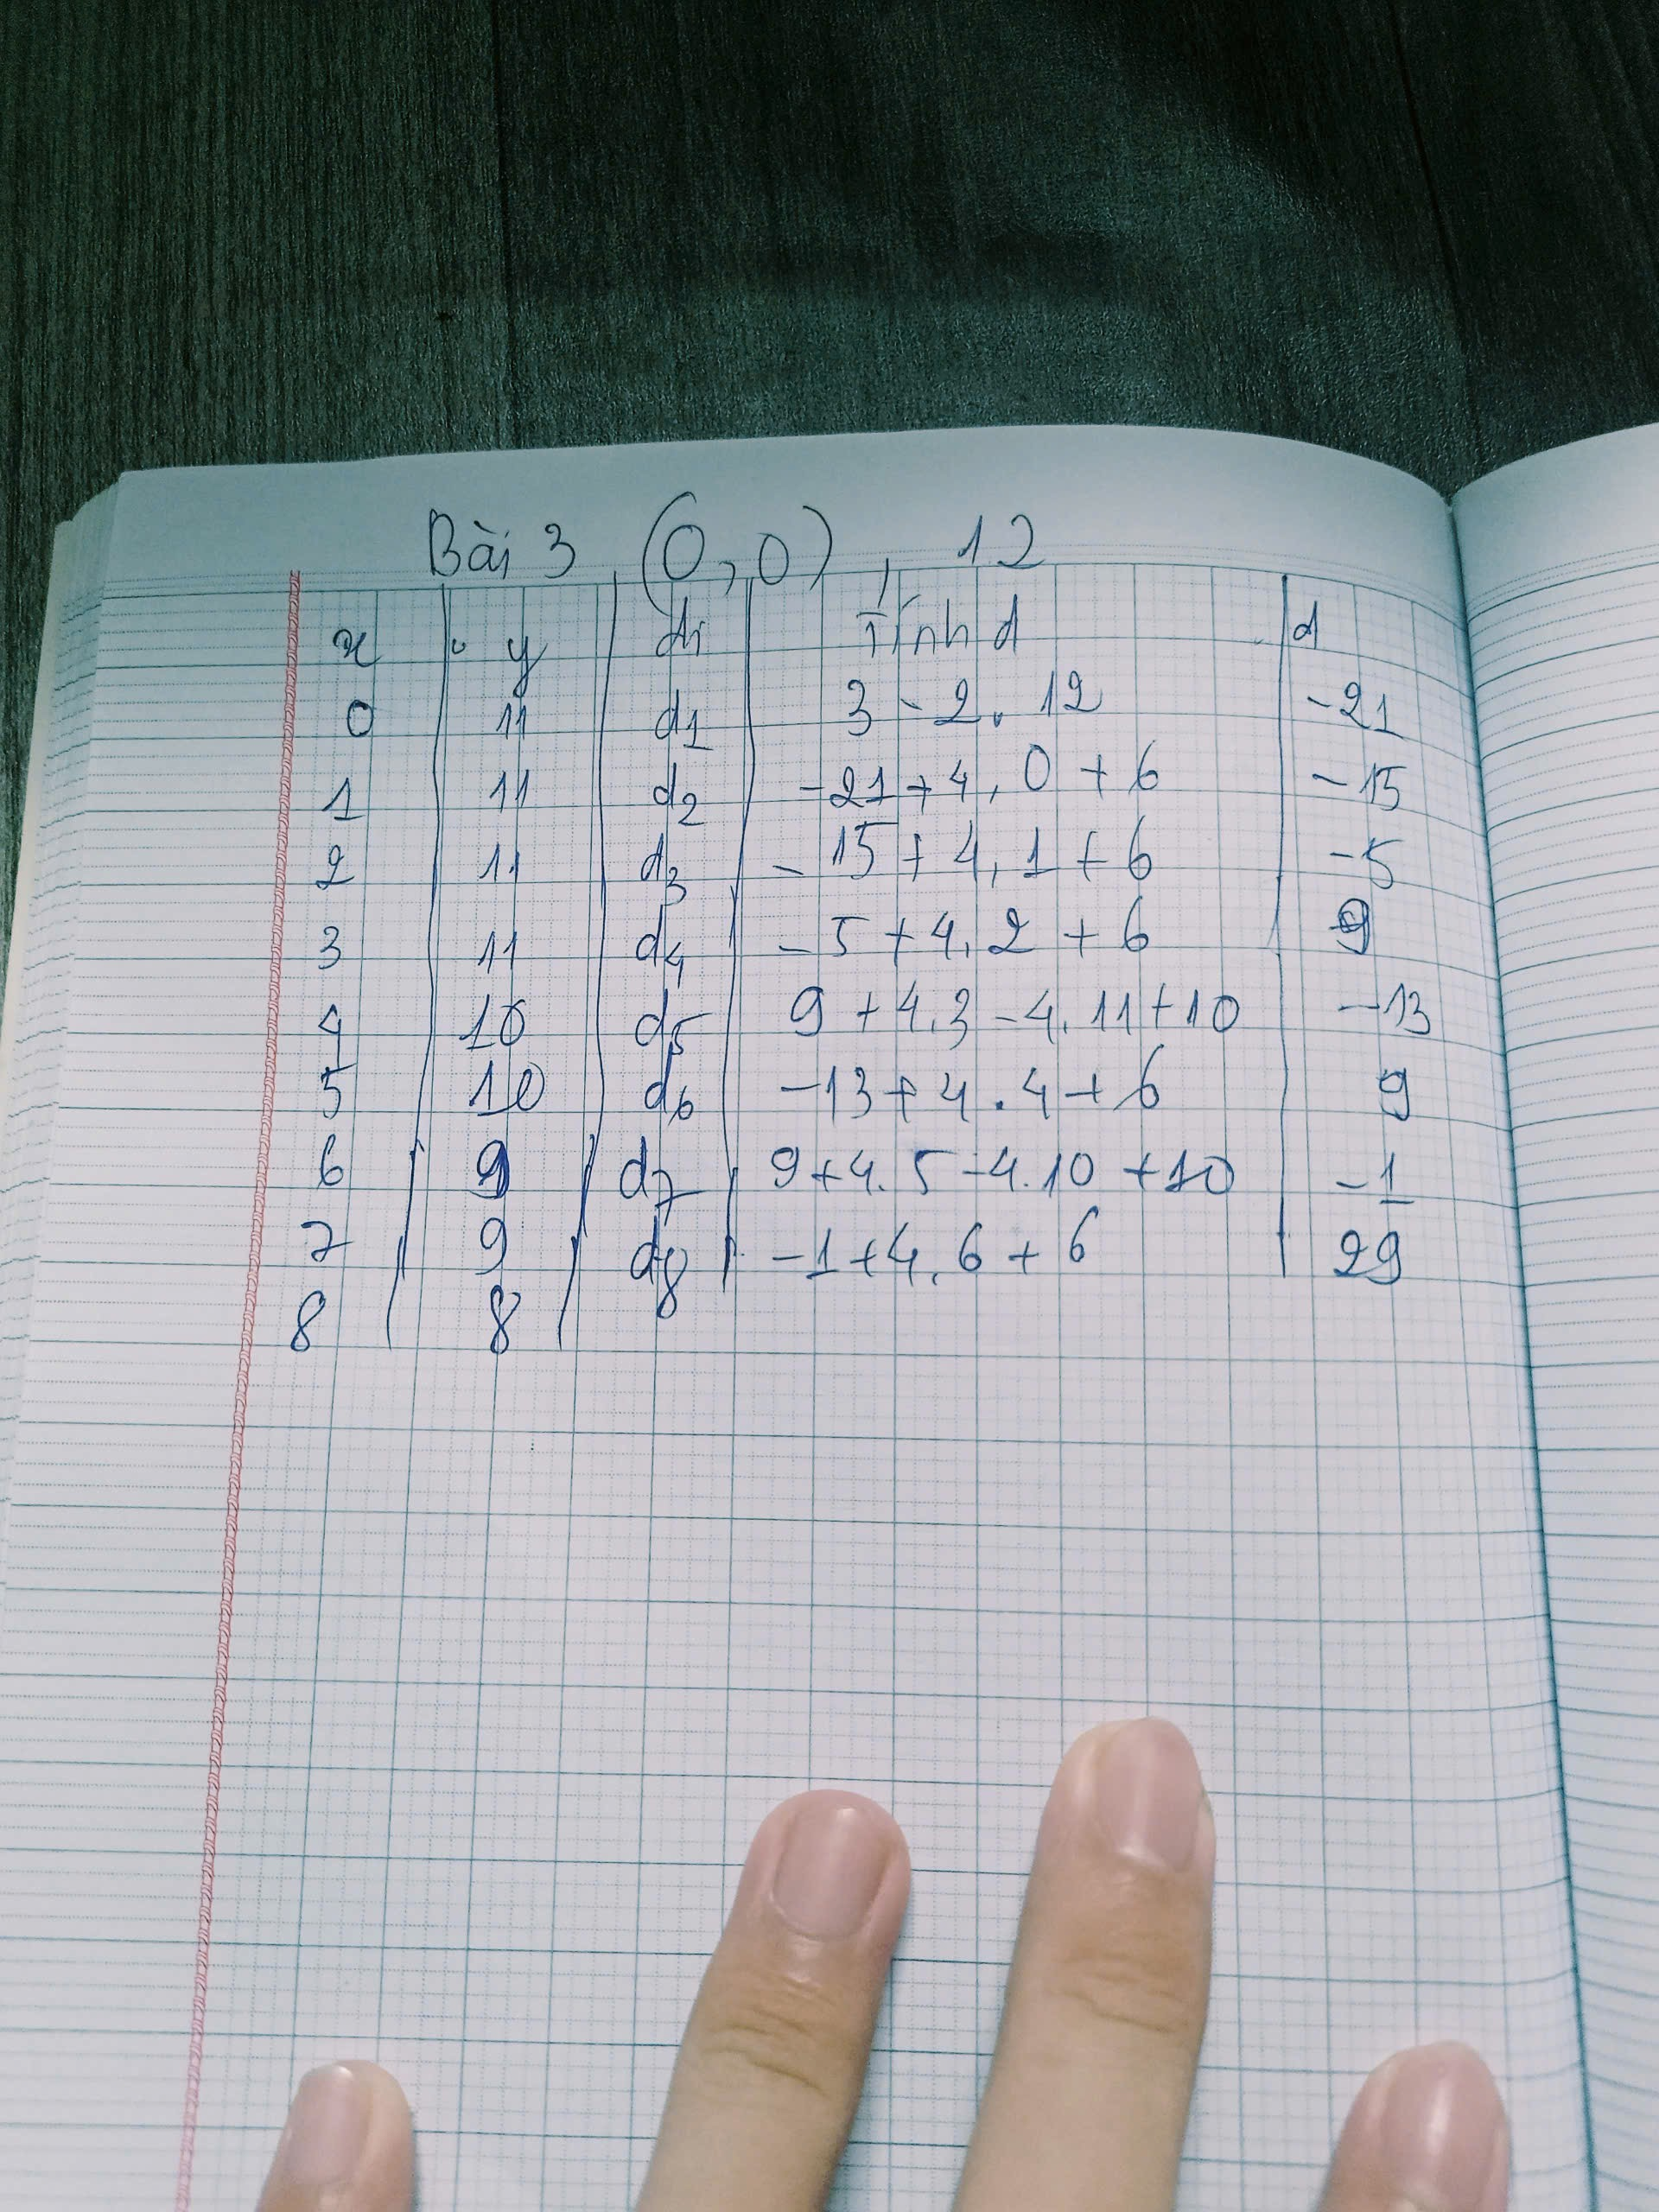 Bài 3 (0,0), 12
x y di Tính d d
0 11 d1 3 - 2. 12 -21
1 11 d2 -21 + 4. 0 + 6 -15
2 11 d3 - 15 + 4. 1 + 6 -5
3 11 d4 - 5 + 4. 2 + 6 9
4 10 d5 9 + 4.3 - 4. 11 + 10 -13
5 10 d6 -13 + 4 . 4 + 6 9
6 9 d7 9 + 4. 5 - 4. 10 + 10 -1
7 9 d8 -1 + 4. 6 + 6 29
8 8